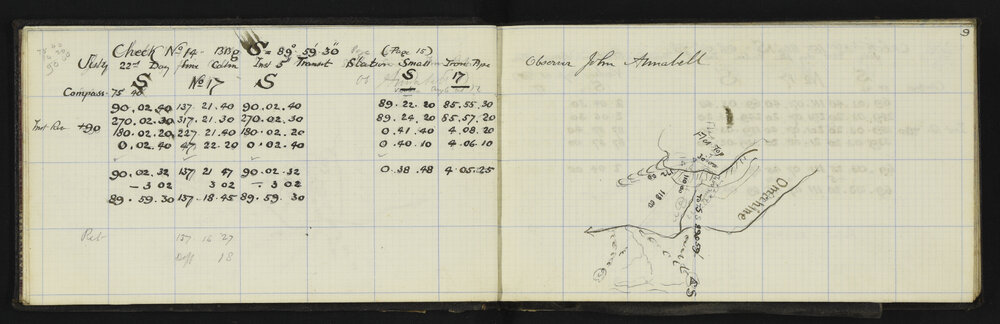 Check No 14 - Brdg S = 89° 59' 30" (Page 15)
July 22nd Day Fine Calm Inst 5" Transit Station Small Iron Pipe
S No 17 S S 17
Compass - 75 40
90.02.40 137.21.40 90.02.40 89.22.20 85.55.30
270.02.30 317.21.30 270.02.30 89.24.20 85.57.20
+90 180.02.20 227.21.40 180.02.20 0.41.40 4.08.20
0.02.40 47.22.20 0.02.40 0.40.10 4.06.10
90.02.32 137.21 47 90.02.32 0.38.48 4.05.25
- 3 02 3 02 - 3 02
89.59.30 137.18.45 89.59.30
137 16 27
Diff 18
9
Observer John Annabell
Flat Top
Omerhine
S